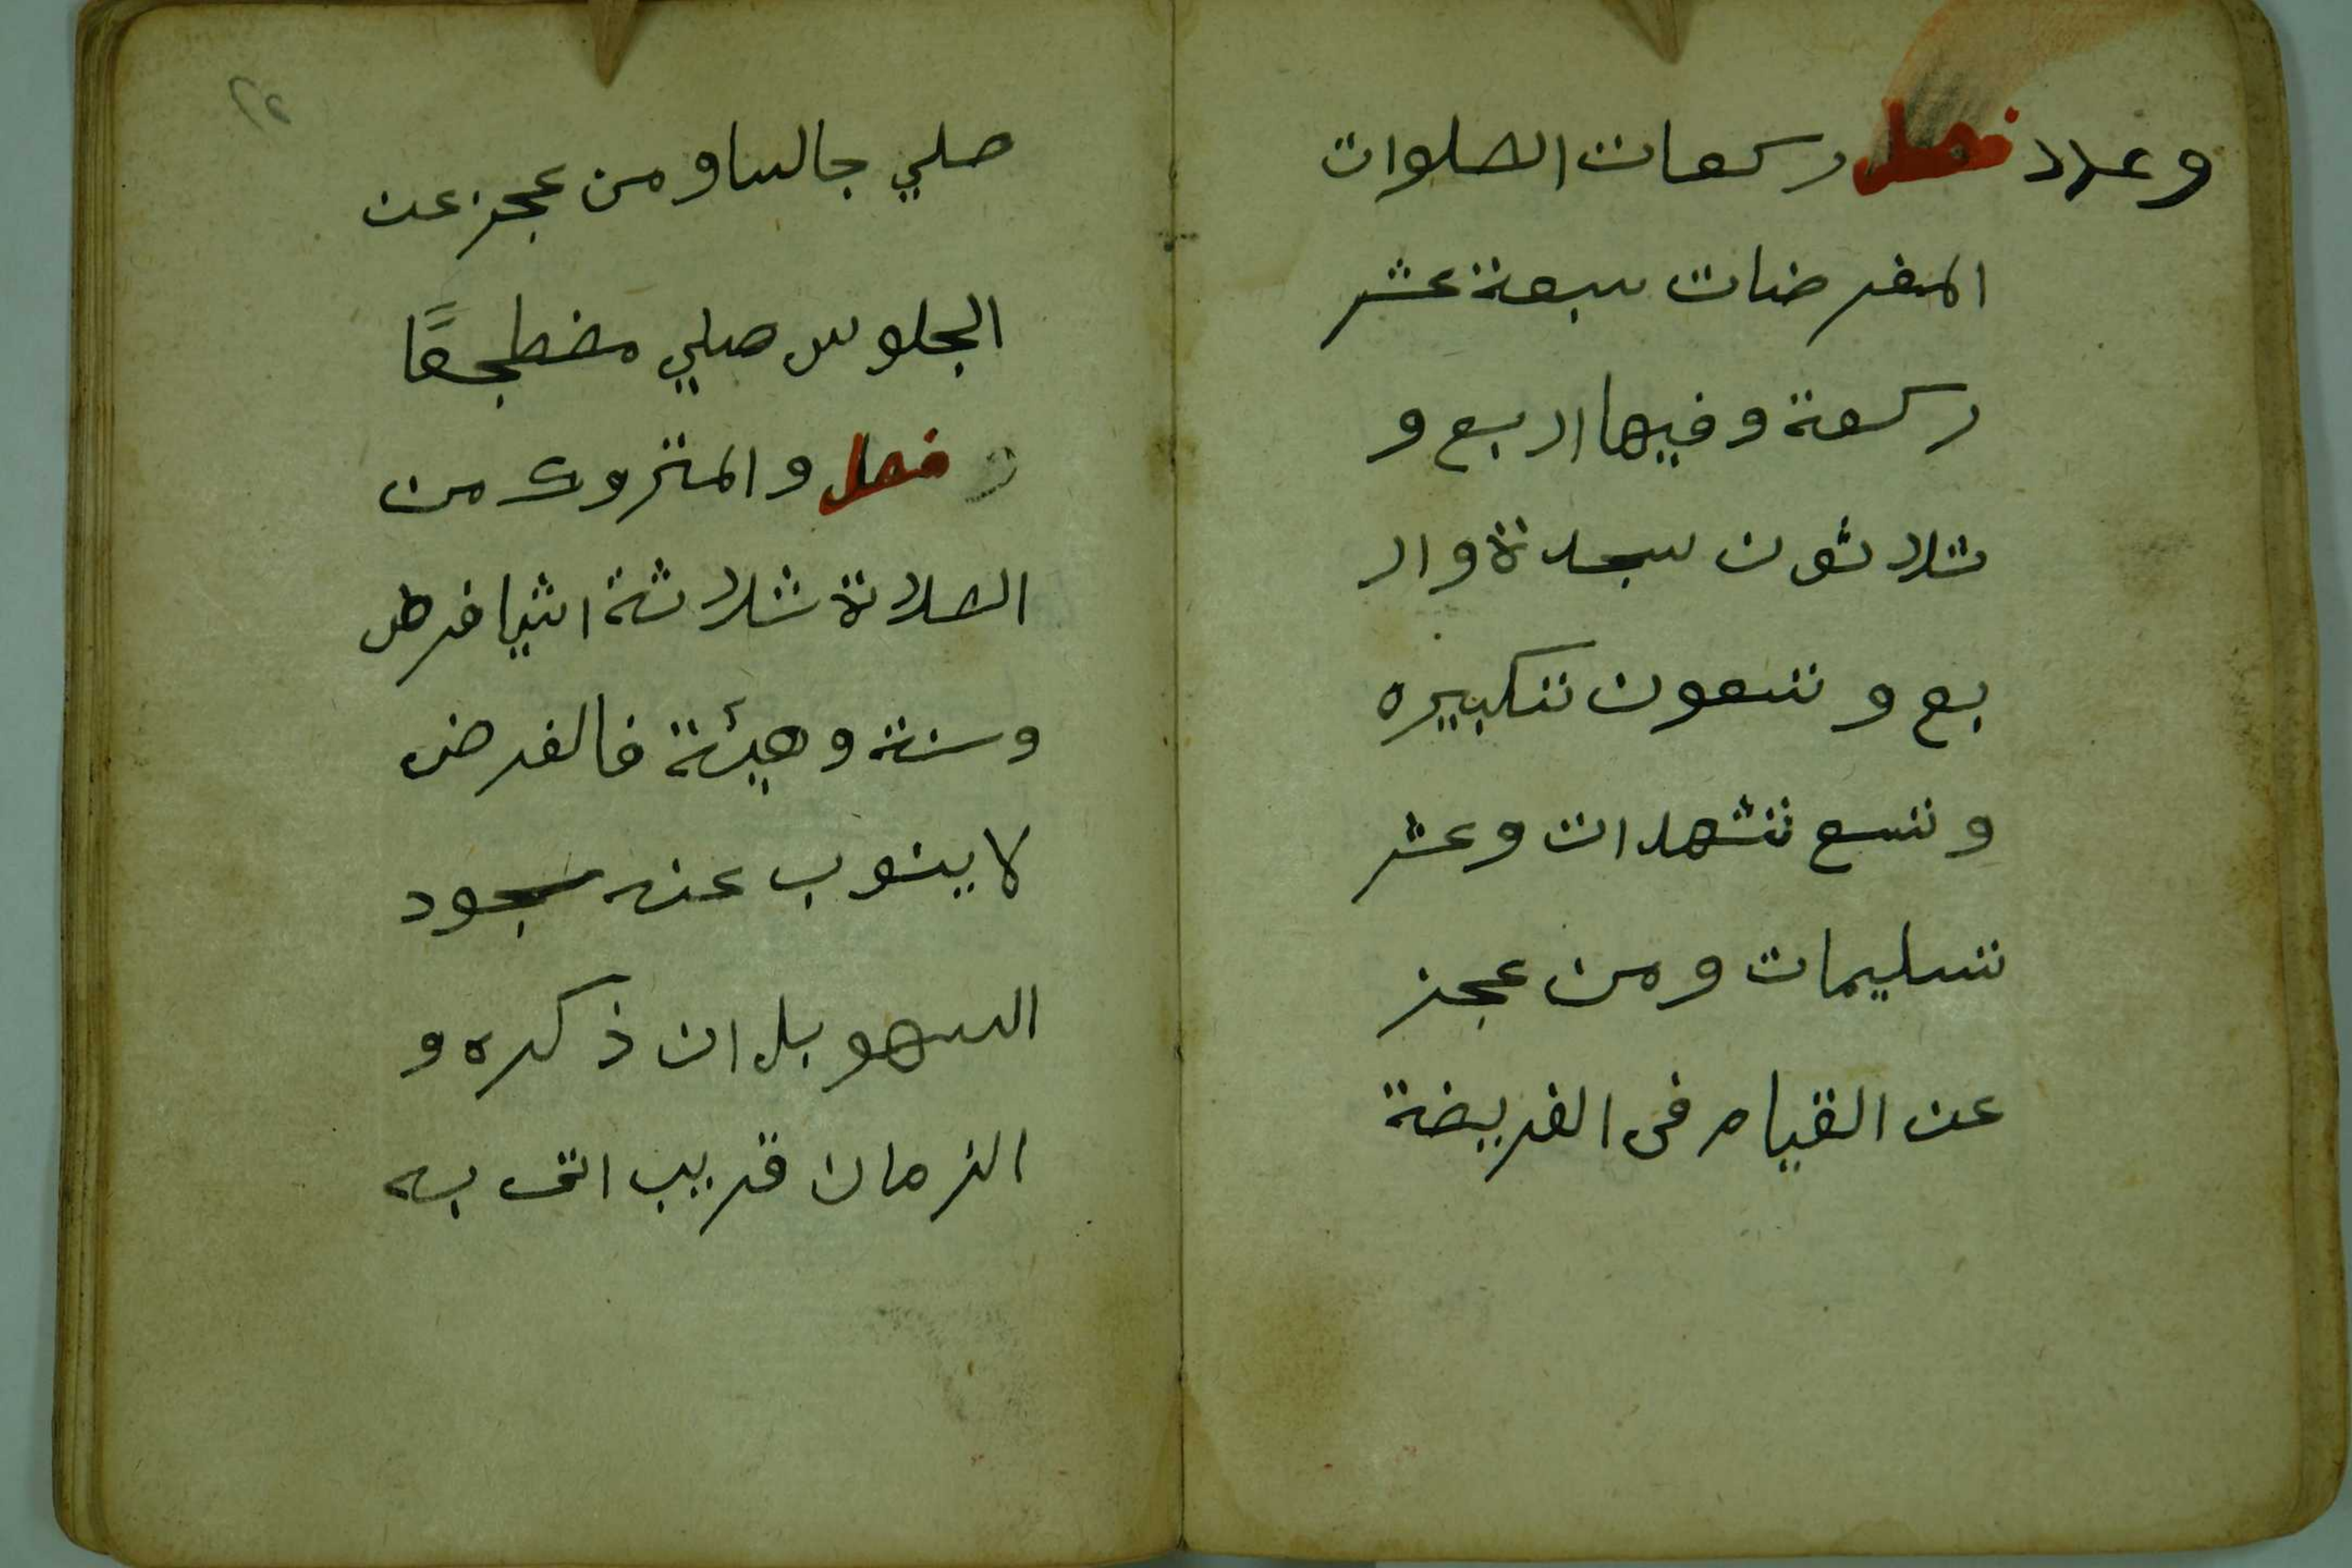 وعدد فصل ركعات الصلوات
المفرضات سبعة عشر
ركعة وفيها اربع و
ثلاثون سجدة وار
بع وتسعون تكبيره
وتسع تشهدات وعشر
تسليمات ومن عجز
عن القيام في الفريضة
صلي جالسا ومن عجز عن
الجلوس صلي مضطجعًا
و فصل والمتروك من
الصلاة ثلاثة اشيا فرض
وسنة وهيئة فالفرض
لا ينوب عنه سجود
السهو بل ان ذكره و
الزمان قريب اتى به